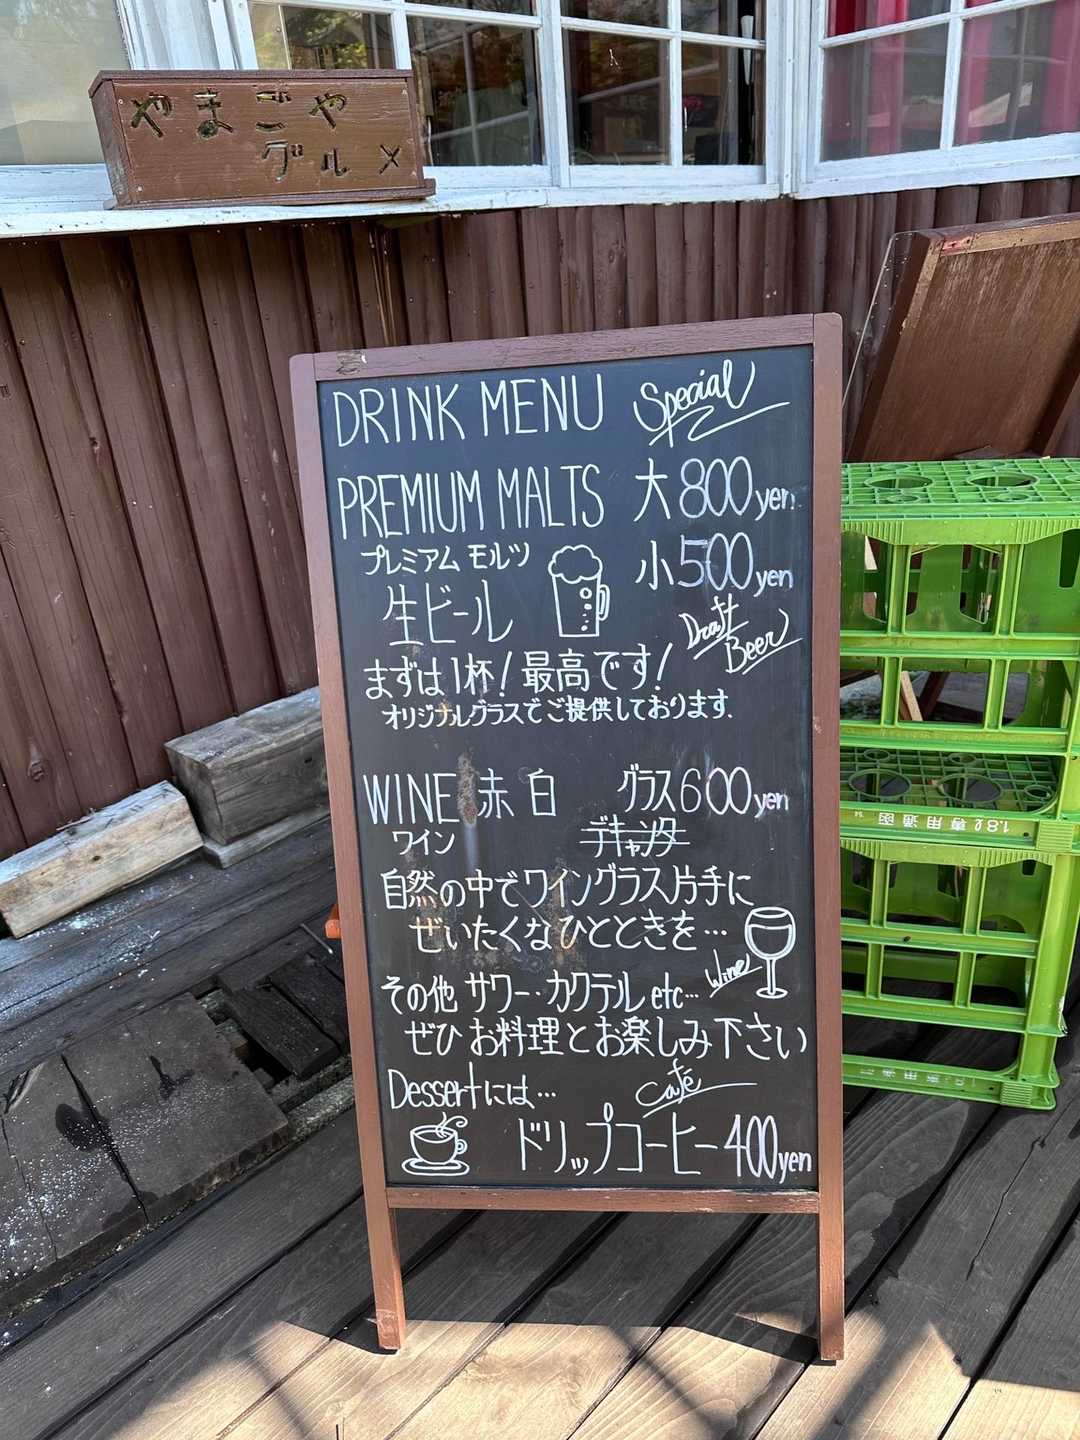 やまごや
グルメ
DRINK MENU Special
PREMIUM MALTS 大 800yen
プレミアム モルツ 小 500yen
生ビール
Draft Beer
まずは1杯! 最高です!
オリジナルグラスでご提供しております.
WINE 赤 白 グラス 600yen
ワイン デキャンタ
自然の中でワイングラス片手に
ぜいたくなひとときを…
Wine
その他 サワー・カクテル etc…
ぜひ お料理とお楽しみ下さい
Dessertには… café
ドリップコーヒー 400yen
1.8ℓ専用通函